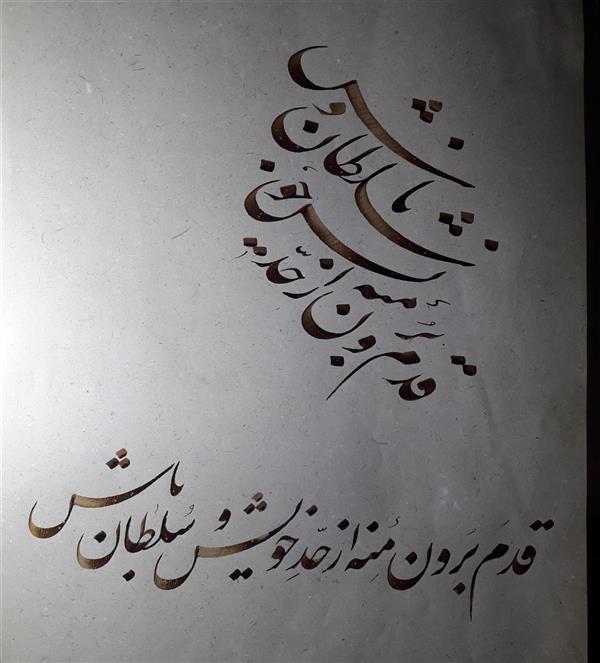 قدم برون منه از حدّ خویش و سلطان باش
قدَم بَرون مُنِه از حَدِّ خویش و سُلطان باش